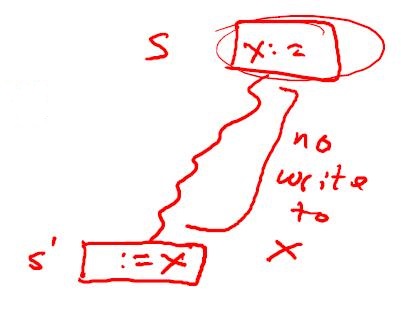 S
x:=
no
write
to
x
s'
:= x